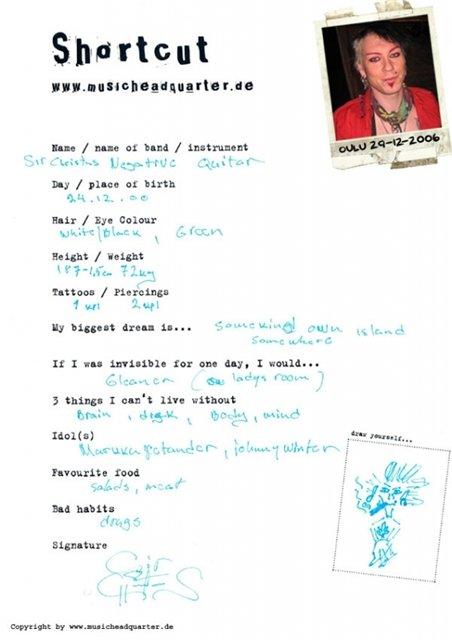 Shortcut
www.musicheadquarter.de
OULU 29-12-2006
Name / name of band / instrument
Sir Christus Negative Guitar
Day / place of birth
24.12.00
Hair / Eye Colour
White/Black, Green
Height / Weight
72kg
Tattoos / Piercings
1 kpl 2 kpl
My biggest dream is... own island
somewhere
If I was invisible for one day, I would...
Cleaner ( ladys room)
3 things I can't live without
Brain, Body, mind
Idol(s)
johnny winter
draw yourself...
Favourite food
salads, meat
Bad habits
drugs
Signature
Copyright by www.musicheadquarter.de